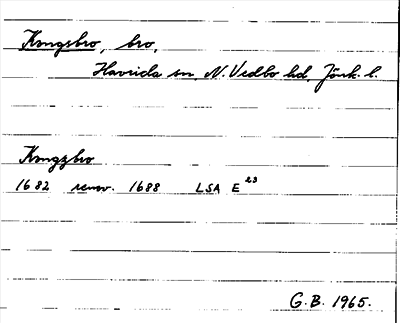 Kongsbro, bro,
Haurida sn, N. Vedbo hd, Jönk. l.
Kongzbro
1682 renov. 1688 LSA E 23
G.B. 1965.